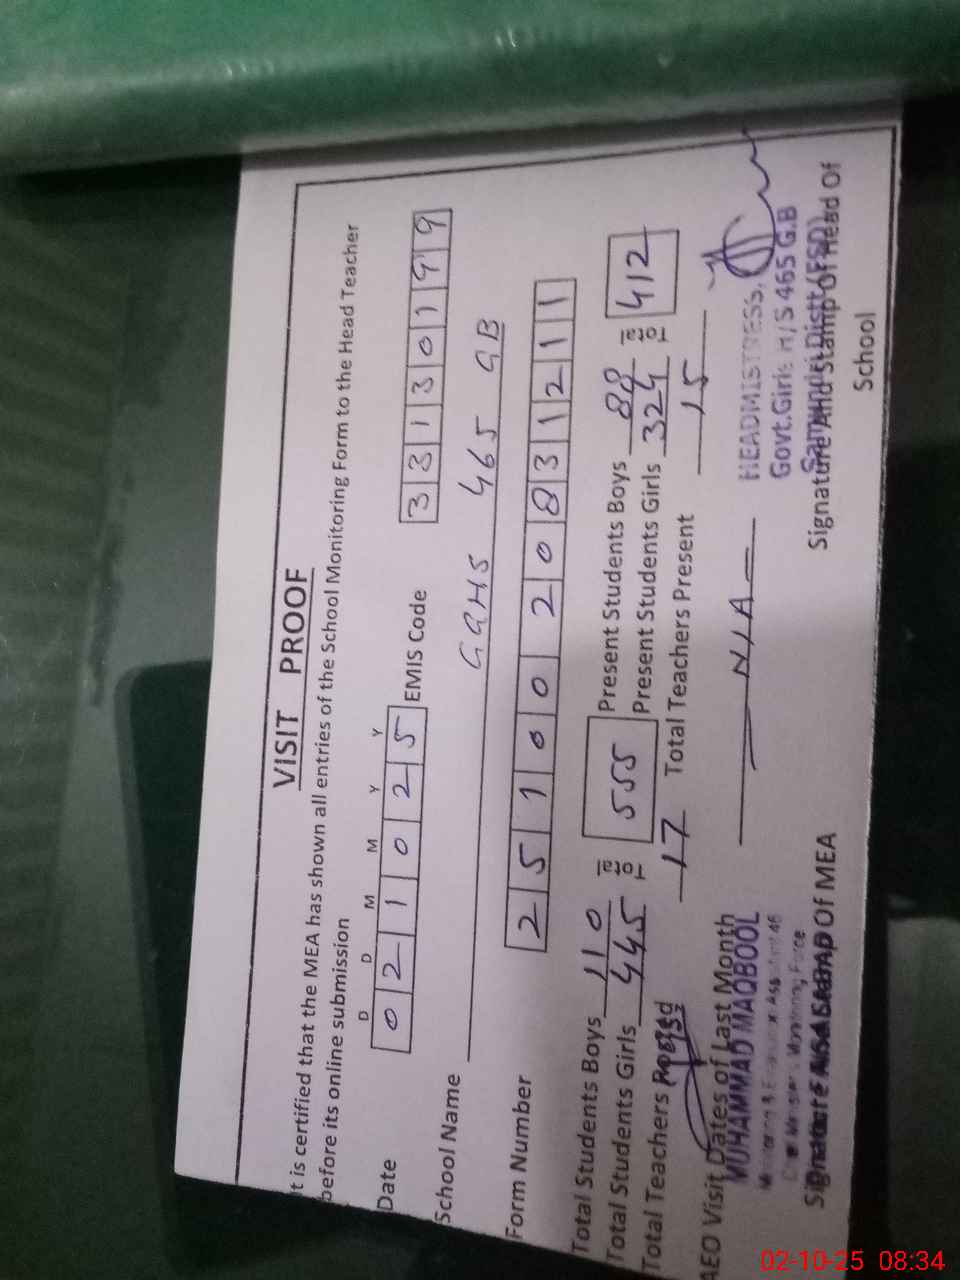 VISIT PROOF
It is certified that the MEA has shown all entries of the School Monitoring Form to the Head Teacher
before its online submission
D D M M Y Y
Date 0 2 1 0 2 5 EMIS Code 3 3 1 3 0 1 9 9
School Name GGHS 465 GB
Form Number 2 5 1 0 0 2 0 8 3 1 2 1 1
Total Students Boys 110 Total 555 Present Students Boys 88 Total 412
Total Students Girls 445 Present Students Girls 324
Total Teachers 17 Total Teachers Present 15
AEO Visit Dates of Last Month N/A
MUHAMMAD MAQBOOL
HEADMISTRESS,
Govt.Girls H/S 465 G.B
Of MEA
Signature And Stamp Of Head Of
School
02-10-25 08:34